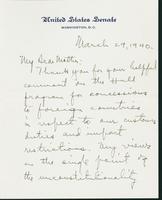 United States Senate
WASHINGTON, D.C.
March 29, 1940.
My Dear Mother:
Thank you for your helpful
comment on the Hull
program for concessions
to foreign countries
in respect to our customs
duties and import
restrictions. My views
on the single point of
the unconstitutionality